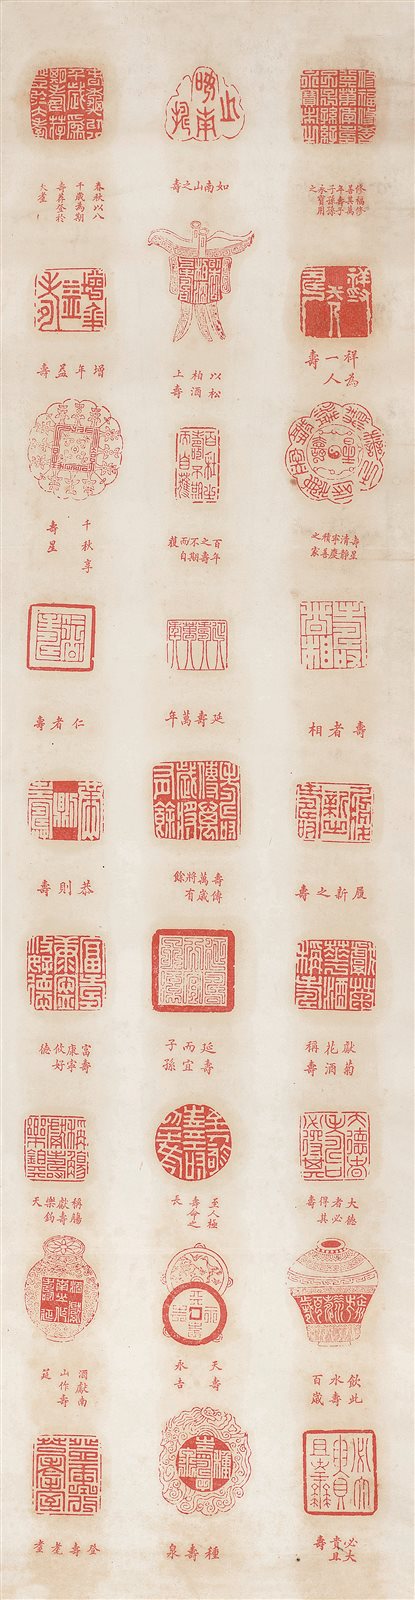 修福修
善其萬
年壽子
子孫孫
永寶用
之
祥為
一人
壽
壽星
清靜
寧慶
積善
之家
壽者相
履新之壽
獻菊
花酒
稱壽
大德
者必
得其
壽
飲此
水壽
百歲
必大
貴且
壽
如南山之壽
以松
柏酒
上壽
百年
之壽
不期
而自
獲
延壽萬年
壽傳
萬歲
將有
餘
延壽
而宜
子孫
至人極
壽命之
長
天壽
永吉
種壽泉
春秋以八
千歲為期
壽登於
大耋
增年益壽
千秋享
壽星
仁者壽
恭則壽
富壽
康寧
攸好
德
稱觴
獻壽
樂鈞
天
酒獻南
山作壽
筵
登壽耋